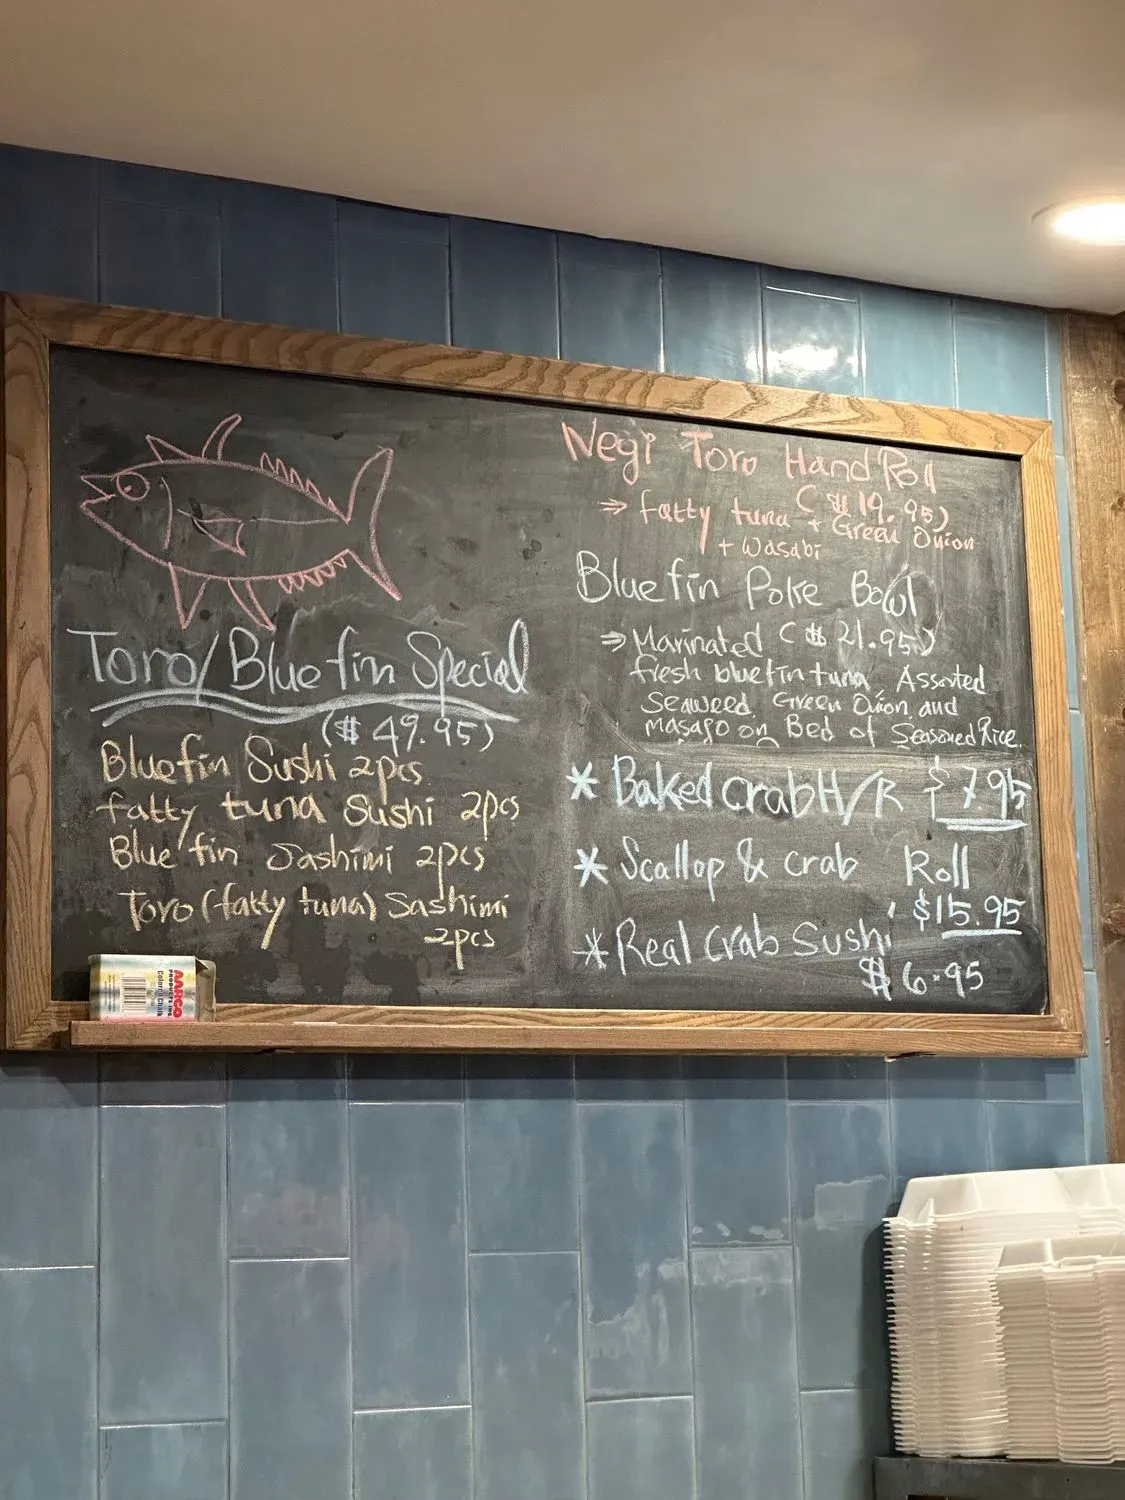 Toro/Bluefin Special
($ 49.95)
Bluefin Sushi 2pcs
fatty tuna Sushi 2pcs
Bluefin Sashimi 2pcs
Toro (fatty tuna) Sashimi
2pcs
Negi Toro Hand Roll
($19.95)
⇒ fatty tuna + Green Onion
+ Wasabi
Bluefin Poke Bowl
⇒ Marinated ($ 21.95)
fresh bluefin tuna Assorted
Seaweed, Green Onion and
masago on Bed of Seasoned Rice.
* Baked crab H/R $7.95
* Scallop & crab Roll
$15.95
* Real crab Sushi
$ 6.95
AARCO
PRODUCTS INC.
Colored Chalk